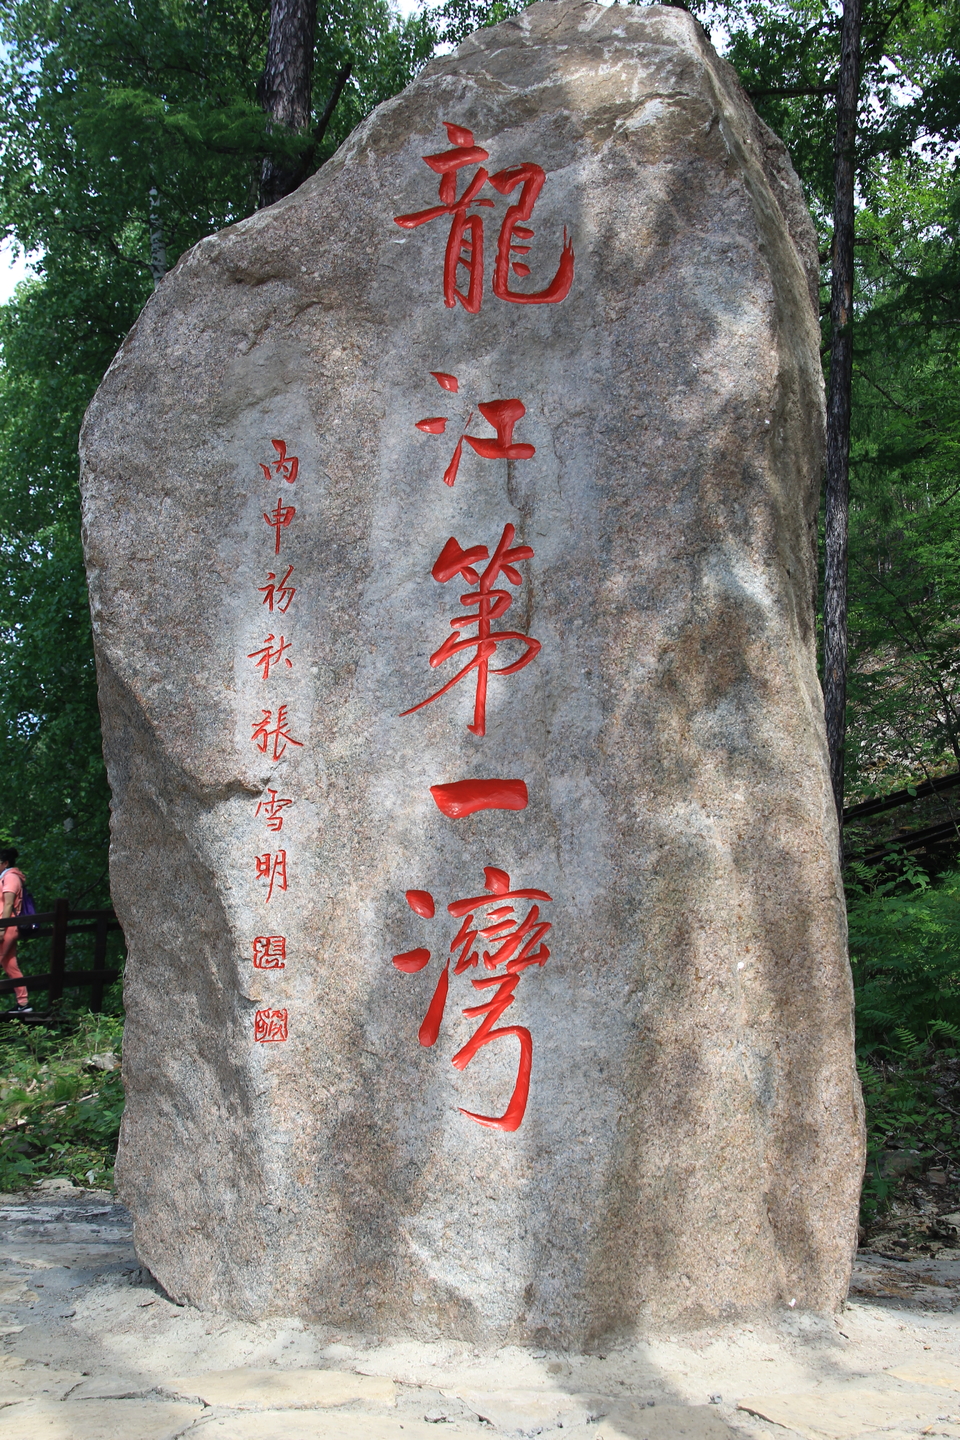 龍江第一灣
丙申初秋張雪明